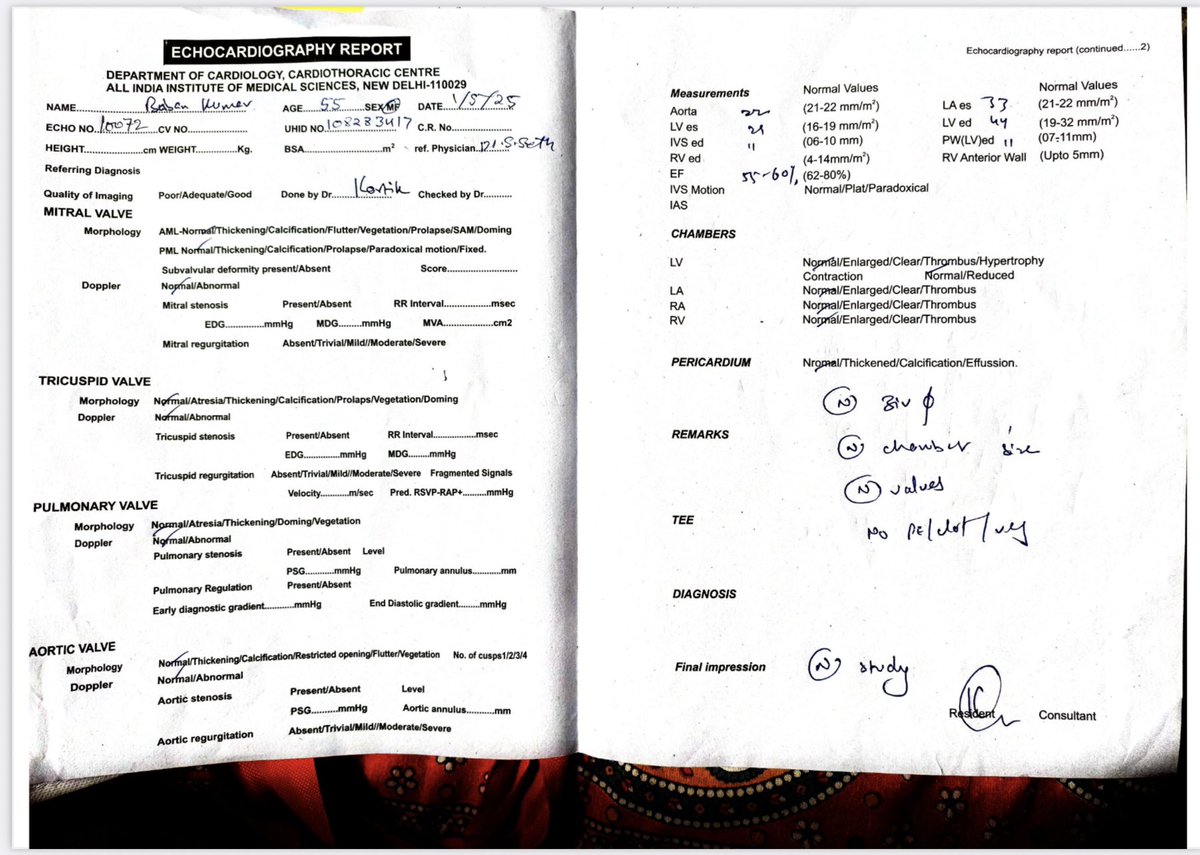 ECHOCARDIOGRAPHY REPORT
DEPARTMENT OF CARDIOLOGY, CARDIOTHORACIC CENTRE
ALL INDIA INSTITUTE OF MEDICAL SCIENCES, NEW DELHI-110029
NAME.......... Baban Kumar AGE..... 55 SEX/MF DATE..... 1/5/25
ECHO NO. 10072 CV NO............ UHID NO. 108283417 C.R. No............
HEIGHT............cm WEIGHT............Kg. BSA............m² ref. Physician. S. Seth
Referring Diagnosis
Quality of Imaging Poor/Adequate/Good Done by Dr. Kartik Checked by Dr..........
MITRAL VALVE
Morphology AML-Normal/Thickening/Calcification/Flutter/Vegetation/Prolapse/SAM/Doming
PML Normal/Thickening/Calcification/Prolapse/Paradoxical motion/Fixed.
Subvalvular deformity present/Absent Score..........................
Doppler Normal/Abnormal
Mitral stenosis Present/Absent RR Interval..................msec
EDG..............mmHg MDG.........mmHg MVA....................cm2
Mitral regurgitation Absent/Trivial/Mild//Moderate/Severe
TRICUSPID VALVE
Morphology Normal/Atresia/Thickening/Calcification/Prolaps/Vegetation/Doming
Doppler Normal/Abnormal
Tricuspid stenosis Present/Absent RR Interval................msec
EDG..............mmHg MDG.........mmHg
Tricuspid regurgitation Absent/Trivial/Mild//Moderate/Severe Fragmented Signals
Velocity............m/sec Pred. RSVP-RAP+..........mmHg
PULMONARY VALVE
Morphology Normal/Atresia/Thickening/Doming/Vegetation
Doppler Normal/Abnormal
Pulmonary stenosis Present/Absent Level
PSG..........mmHg Pulmonary annulus...........mm
Pulmonary Regulation Present/Absent
Early diagnostic gradient............mmHg End Diastolic gradient.........mmHg
AORTIC VALVE
Morphology Normal/Thickening/Calcification/Restricted opening/Flutter/Vegetation No. of cusps1/2/3/4
Doppler Normal/Abnormal
Aortic stenosis Present/Absent Level
PSG..........mmHg Aortic annulus...........mm
Aortic regurgitation Absent/Trivial/Mild//Moderate/Severe
Echocardiography report (continued......2)
Measurements Normal Values Normal Values
Aorta 22 (21-22 mm/m²) LA es 33 (21-22 mm/m²)
LV es 21 (16-19 mm/m²) LV ed 44 (19-32 mm/m²)
IVS ed 11 (06-10 mm) PW(LV)ed 11 (07-11mm)
RV ed (4-14mm/m²) RV Anterior Wall (Upto 5mm)
EF 55-60% (62-80%)
IVS Motion Normal/Plat/Paradoxical
IAS
CHAMBERS
LV Normal/Enlarged/Clear/Thrombus/Hypertrophy
Contraction Normal/Reduced
LA Normal/Enlarged/Clear/Thrombus
RA Normal/Enlarged/Clear/Thrombus
RV Normal/Enlarged/Clear/Thrombus
PERICARDIUM Nromal/Thickened/Calcification/Effussion.
(N) BiV ϕ
REMARKS (N) chamber size
(N) valves
TEE No PE/clot/veg
DIAGNOSIS
Final impression (N) study
Resident Consultant